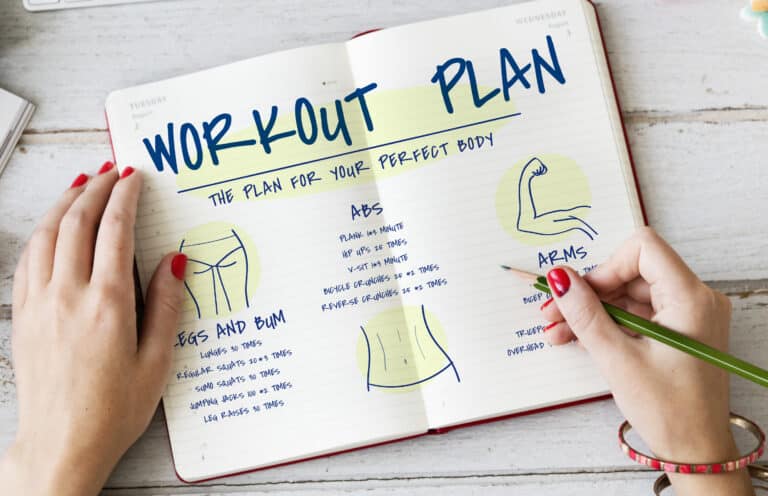 TUESDAY
August
2
WEDNESDAY
August
3
WORKOUT PLAN
THE PLAN FOR YOUR PERFECT BODY
LEGS AND BUM
LUNGES 30 TIMES
REGULAR SQUATS 20 *3 TIMES
SUMO SQUATS 30 TIMES
JUMPING JACKS 100 *2 TIMES
LEG RAISES 30 TIMES
ABS
PLANK 1*3 MINUTE
HIP UPS 20 TIMES
V-SIT 1*3 MINUTE
BICYCLE CRUNCHES 20 *2 TIMES
REVERSE CRUNCHES 20 *2 TIMES
ARMS
BICEP
TRICEPS
OVERHEAD